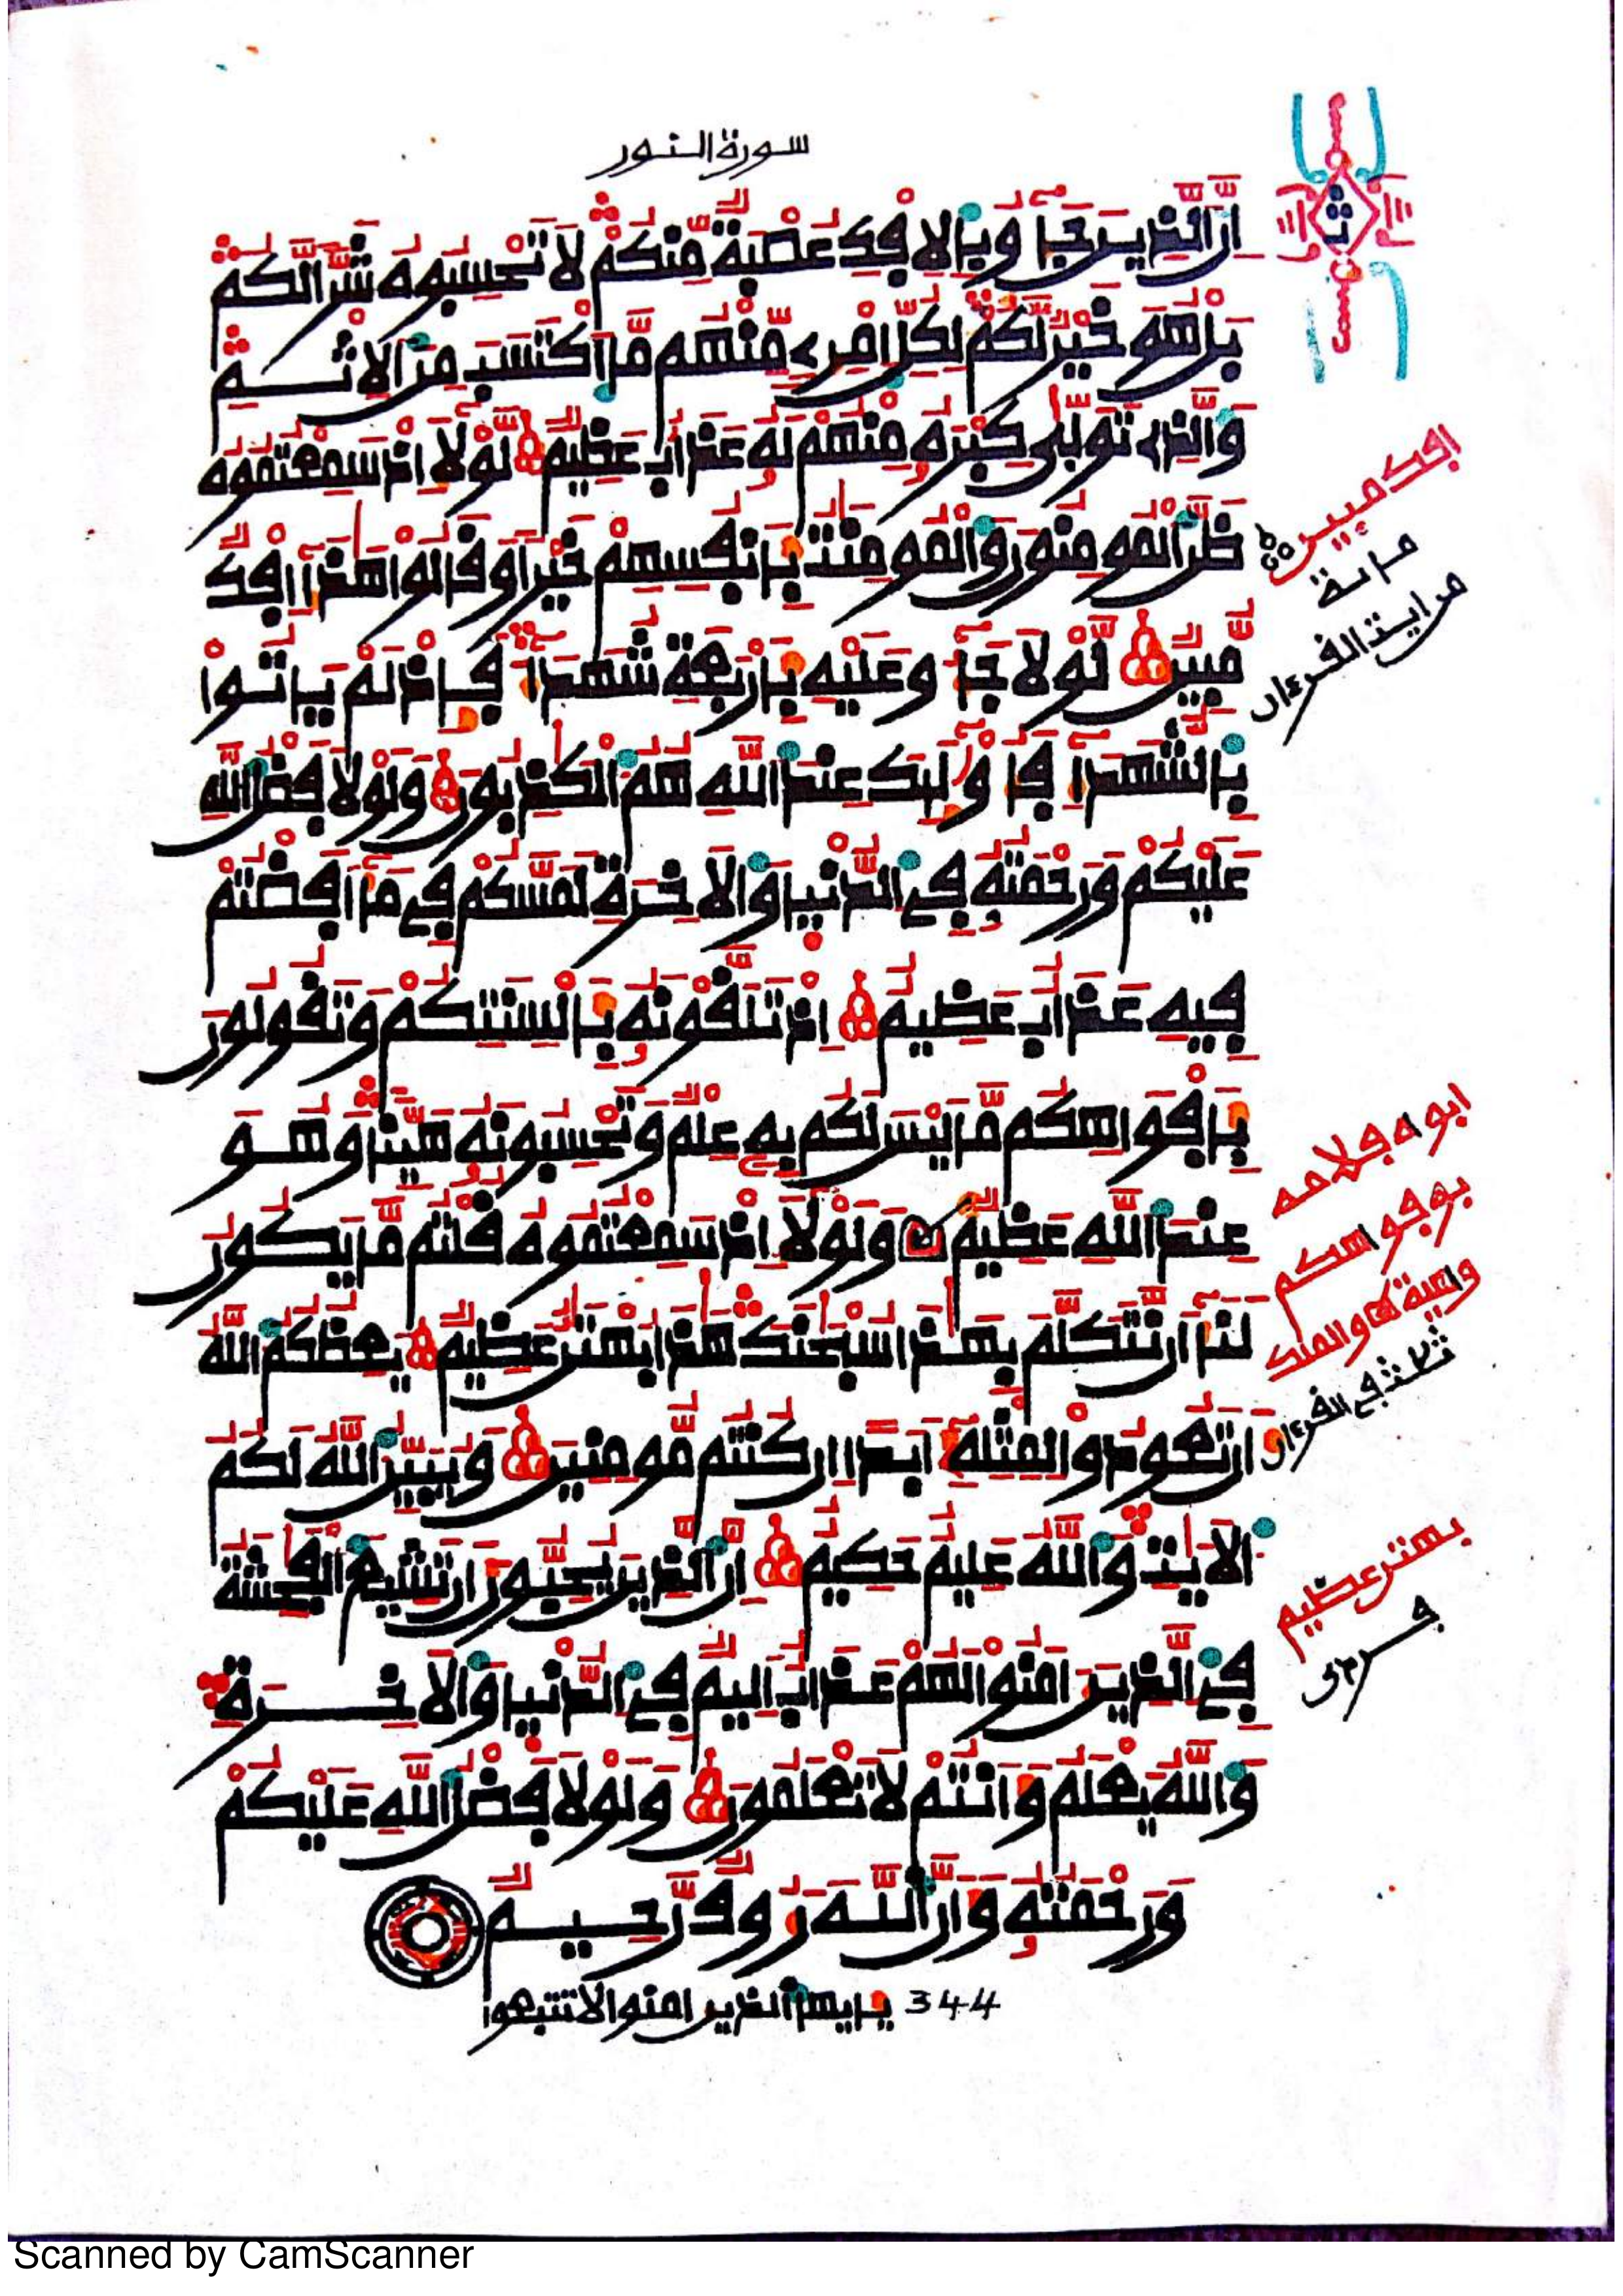 سورة النور
إِنَّ الذِينَ جَآءُو بِالاِفْكِ عُصْبَةٌ مِّنكُمْ لَا تَحْسِبُوهُ شَرّاً لَّكُم
بَلْ هُوَ خَيْرٌ لَّكُمْ لِكُلِّ اِمْرِئٍ مِّنْهُم مَّا اَكْتَسَبَ مِنَ الاِثْمِ
وَالذِے تَوَلّٰى كِبْرَهُۥ مِنْهُمْ لَهُۥ عَذَابٌ عَظِيمٌ لَّوْلَا إِذْ سَمِعْتُمُوهُ
ظَنَّ الْمُومِنُونَ وَالْمُومِنَٰتُ بِأَنفُسِهِمْ خَيْراً وَقَالُواْ هَٰذَآ إِفْكٌ
مُّبِينٌ لَّوْلَا جَآءُو عَلَيْهِ بِأَرْبَعَةِ شُهَدَآءَ فَإِذْ لَمْ يَاتُواْ
بِالشُّهَدَآءِ فَأُوْلَٰٓئِكَ عِندَ اللَّهِ هُمُ الْكَٰذِبُونَ وَلَوْلَا فَضْلُ اللَّهِ
عَلَيْكُمْ وَرَحْمَتُهُۥ فِے الدُّنْيا وَالاَخِرَةِ لَمَسَّكُمْ فِے مَآ أَفَضْتُمْ
فِيهِ عَذَابٌ عَظِيمٌ اِذْ تَلَقَّوْنَهُۥ بِأَلْسِنَتِكُمْ وَتَقُولُونَ
بِأَفْوَاهِكُم مَّا لَيْسَ لَكُم بِهِۦ عِلْمٌ وَتَحْسِبُونَهُۥ هَيِّناً وَهُوَ
عِندَ اللَّهِ عَظِيمٌ وَلَوْلَا إِذْ سَمِعْتُمُوهُ قُلْتُم مَّا يَكُونُ
لَنَآ أَن نَّتَكَلَّمَ بِهَٰذَا سُبْحَٰنَكَ هَٰذَا بُهْتَٰنٌ عَظِيمٌ يَعِظُكُمُ اللَّهُ
أَن تَعُودُواْ لِمِثْلِهِۦٓ أَبَداً اِن كُنتُم مُّومِنِينَ وَيُبَيِّنُ اللَّهُ لَكُمُ
الاَيَٰتِ وَاللَّهُ عَلِيمٌ حَكِيمٌ اِنَّ الذِينَ يُحِبُّونَ أَن تَشِيعَ الْفَٰحِشَةُ
فِے الذِينَ ءَامَنُواْ لَهُمْ عَذَابٌ اَلِيمٌ فِے الدُّنْيا وَالاَخِرَةِ
وَاللَّهُ يَعْلَمُ وَأَنتُمْ لَا تَعْلَمُونَ وَلَوْلَا فَضْلُ اللَّهِ عَلَيْكُمْ
وَرَحْمَتُهُۥ وَأَنَّ اللَّهَ رَءُوفٌ رَّحِيمٌ
344 يأيها الذين امنوا لا تتبعوا
ث
إفك مبين
من ايت القرءان
بأفواهكم
ثلث في القرءان
بهتن عظيم
Scanned by CamScanner